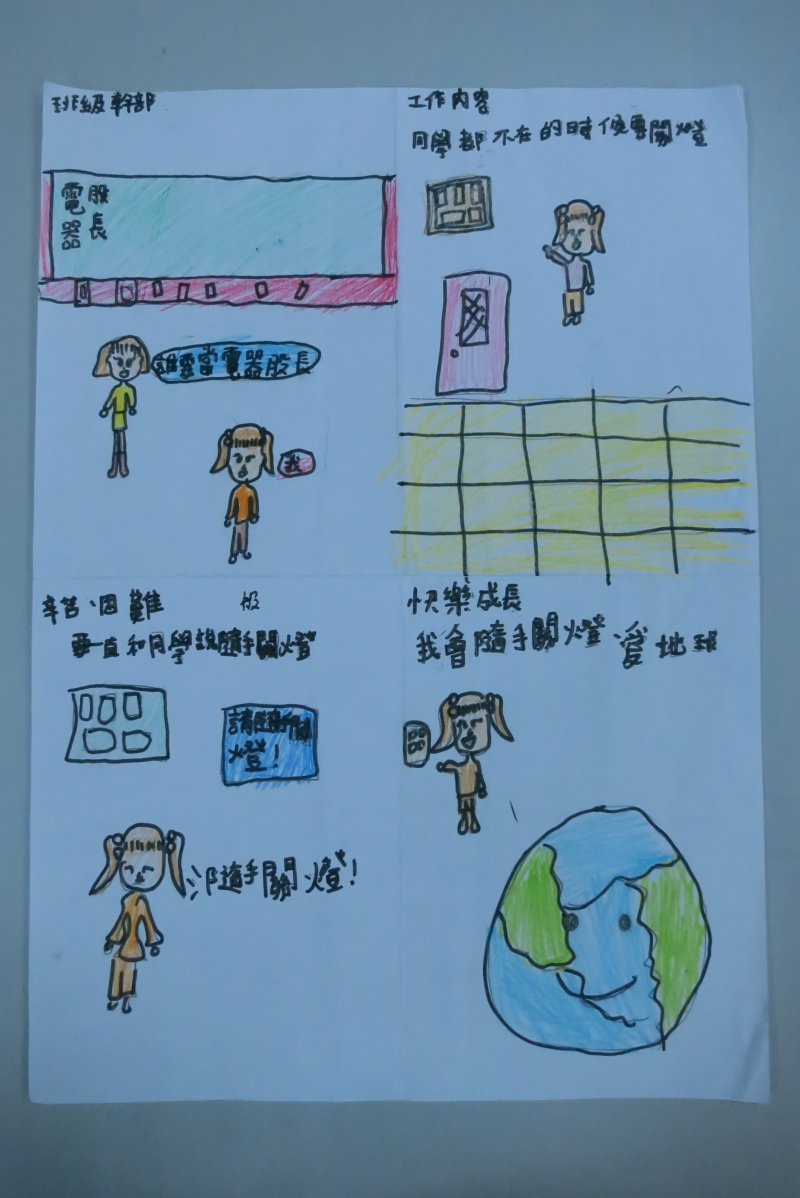 班級幹部
電器
股長
誰要當電器股長
我
工作內容
同學都不在的時候要關燈
辛苦、困難
要一直和同學說隨手關燈
請隨手關
燈!
隨手關燈!
快樂成長
我會隨手關燈 愛地球